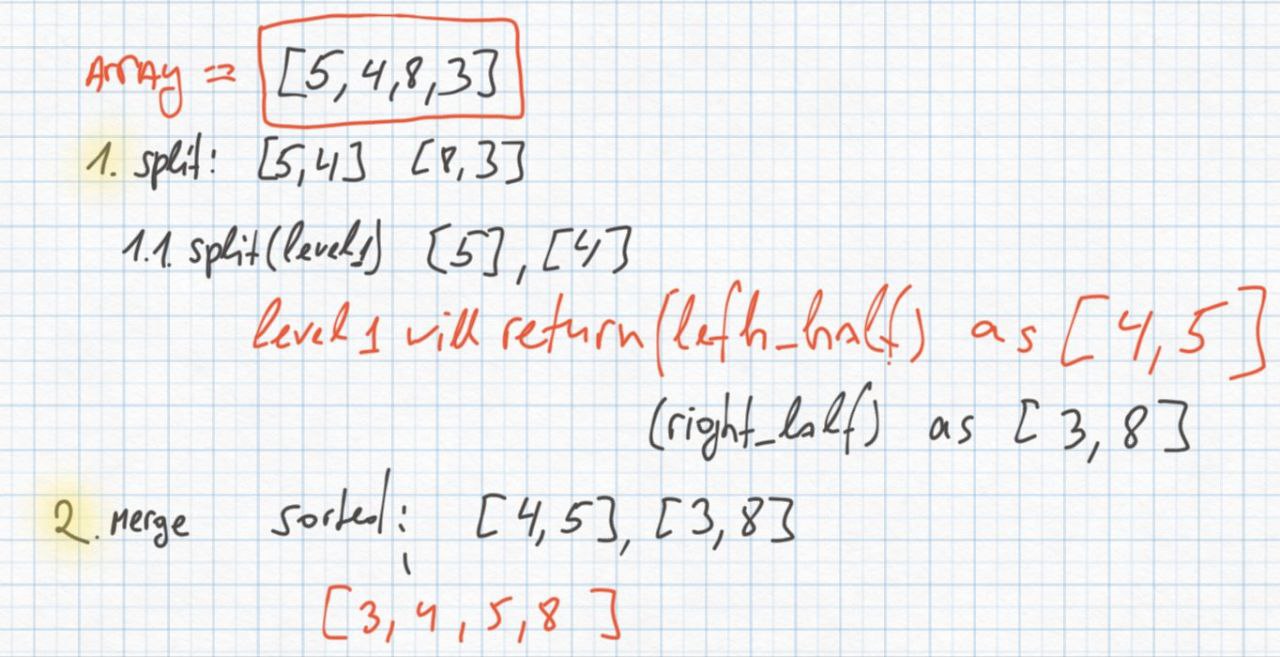 Array = [5,4,8,3]
1. split: [5,4] [8,3]
1.1. split(level1) [5], [4]
level1 will return(left_half) as [4,5]
(right_half) as [3,8]
2. Merge sorted: [4,5], [3,8]
[3,4,5,8]